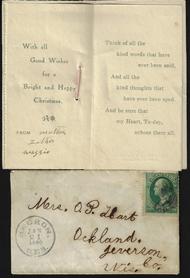 With all
Good Wishes
for a
Bright and Happy
Christmas.
FROM
Think of all the
kind words that have
ever been said,
And all the
kind thoughts that
have ever been sped.
And be sure that
my Heart, To-day,
echoes them all.
JAN
21
Mrs. O.P. Hart
Ockland.
Jeverson,
Co.
Wis.